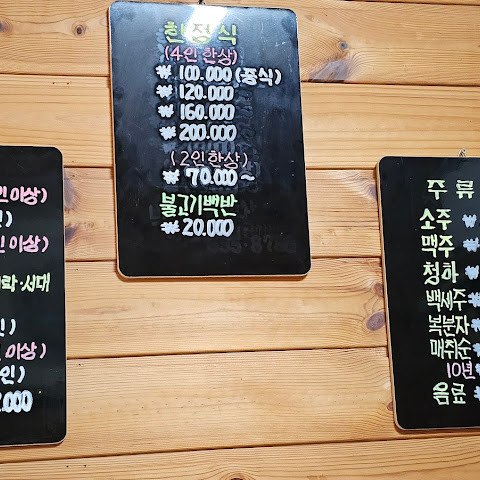 한정식
(4인 한상)
₩ 100.000 (중식)
₩ 120.000
₩ 160.000
₩ 200.000
(2인한상)
₩ 70.000~
불고기백반
₩ 20.000
인이상)
인)
인이상)
락·서대
인)
이상)
인)
2.000
주류
소주 ₩
맥주 ₩
청하 ₩
백세주 ₩
복분자 ₩
매취순 ₩
10년 ₩
음료 ₩